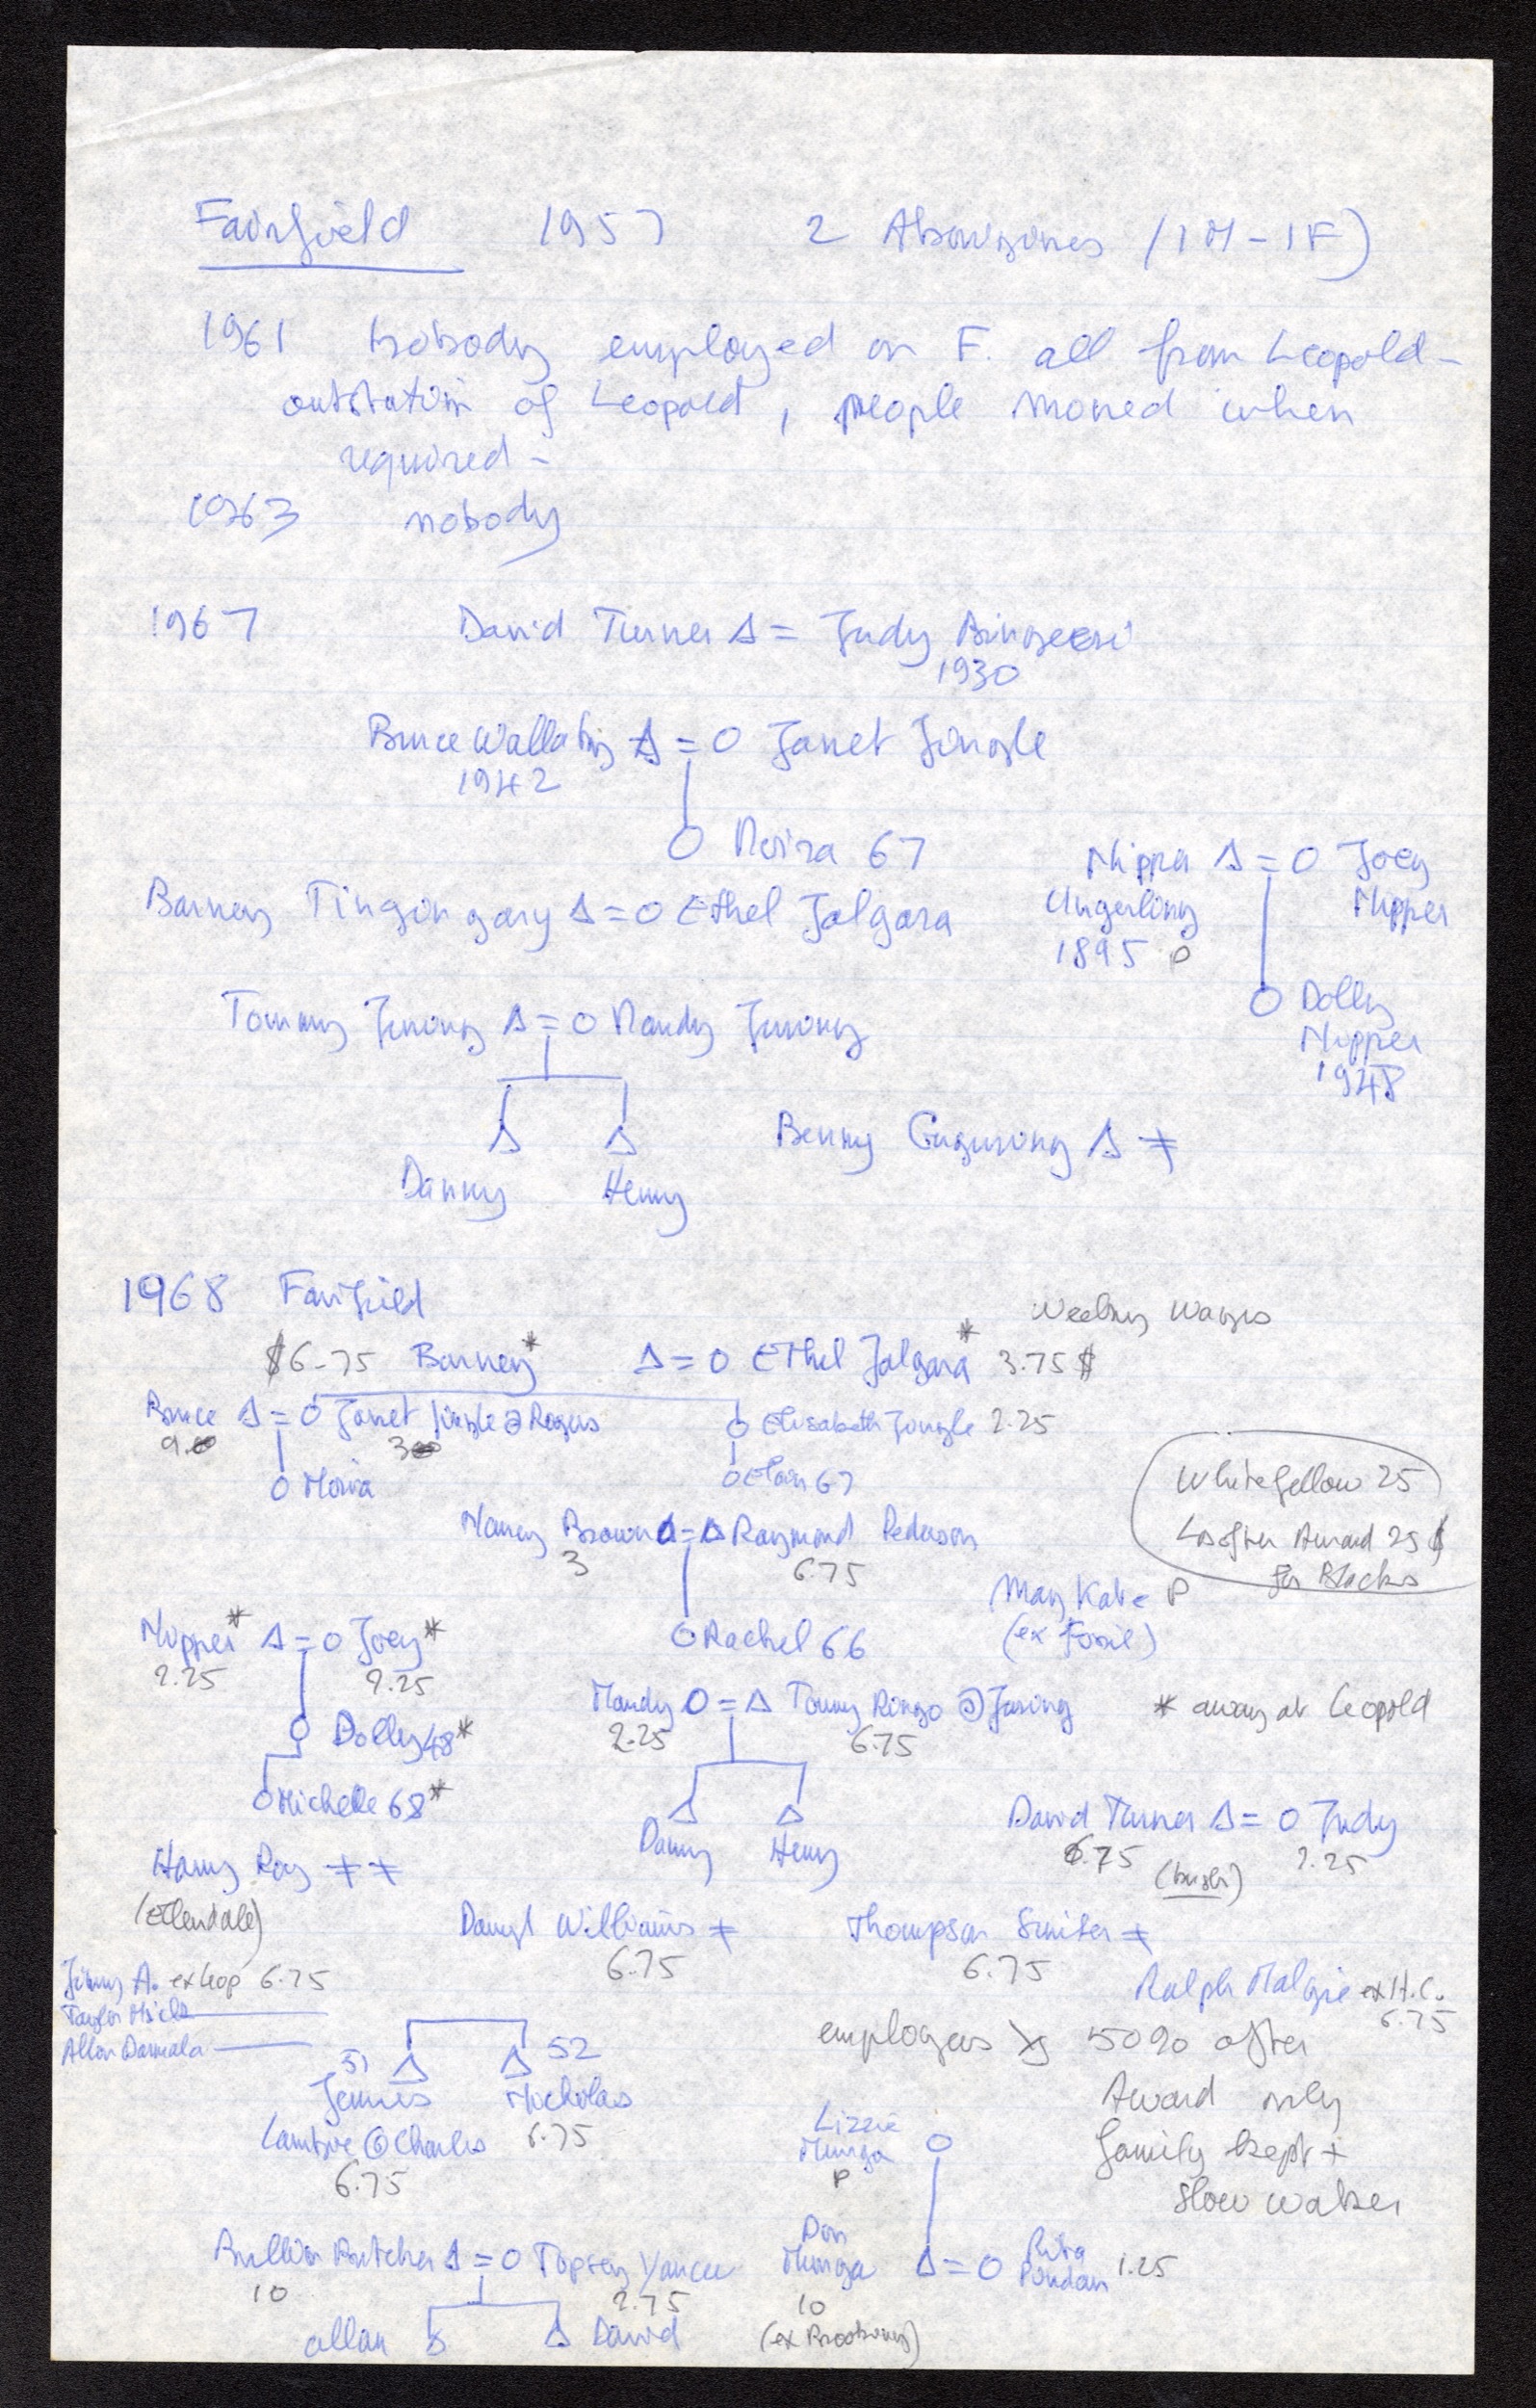 Fairfield 1957 2 Aborigines (1M-1F)
1961 nobody employed on F. all from Leopold -
outstation of Leopold, people moved when
required -
1963 nobody
1967 David Turner Δ = Judy
1930
Bruce Wallaby Δ = O Janet Jungle
1942
O Moira 67
Nipper Δ = O Joey
Ungerling Nipper
1895 P
Barney Tingongary Δ = O Ethel Jalgara
O Dolly
Nipper
1948
Tommy Δ = O Mandy
Δ Δ
Danny Henry
Benny Δ ≠
1968 Fairfield
Weekly Wages
$6-75 Barney* Δ = O Ethel Jalgara* 3.75$
Bruce Δ = O Janet Jungle @ Rogers
9. 3
O Elisabeth Jungle 2.25
O Moira
O 67
Whitefellow 25
after Award 25$
for Blacks
Nancy Brown O = Δ Raymond
3 6.75
O Rachel 66
May Kate P
(ex Fossil)
Nipper* Δ = O Joey*
2.25 2.25
O Dolly 48*
O Michelle 68*
Mandy O = Δ Tommy Ringo @
2.25 6.75
Δ Δ
Danny Henry
* away at Leopold
David Turner Δ = O Judy
6.75 (bush) 2.25
Harry Roy ≠ ≠
(Ellendale)
Daryl Williams ≠
6.75
Thompson ≠
6.75
Jimmy A. ex Leop 6.75
Taylor
Allan
Ralph ex H.C.
6.75
51 Δ Δ 52
James Nicholas
@ Charles 6.75
6.75
employers 50% after
Award only
family kept +
slow
Lizzie
Munga O
P
Butcher Δ = O Topsy
10 2.75
allan Δ Δ David
Don
Munga Δ = O Rita 1.25
10
(ex Brooking)